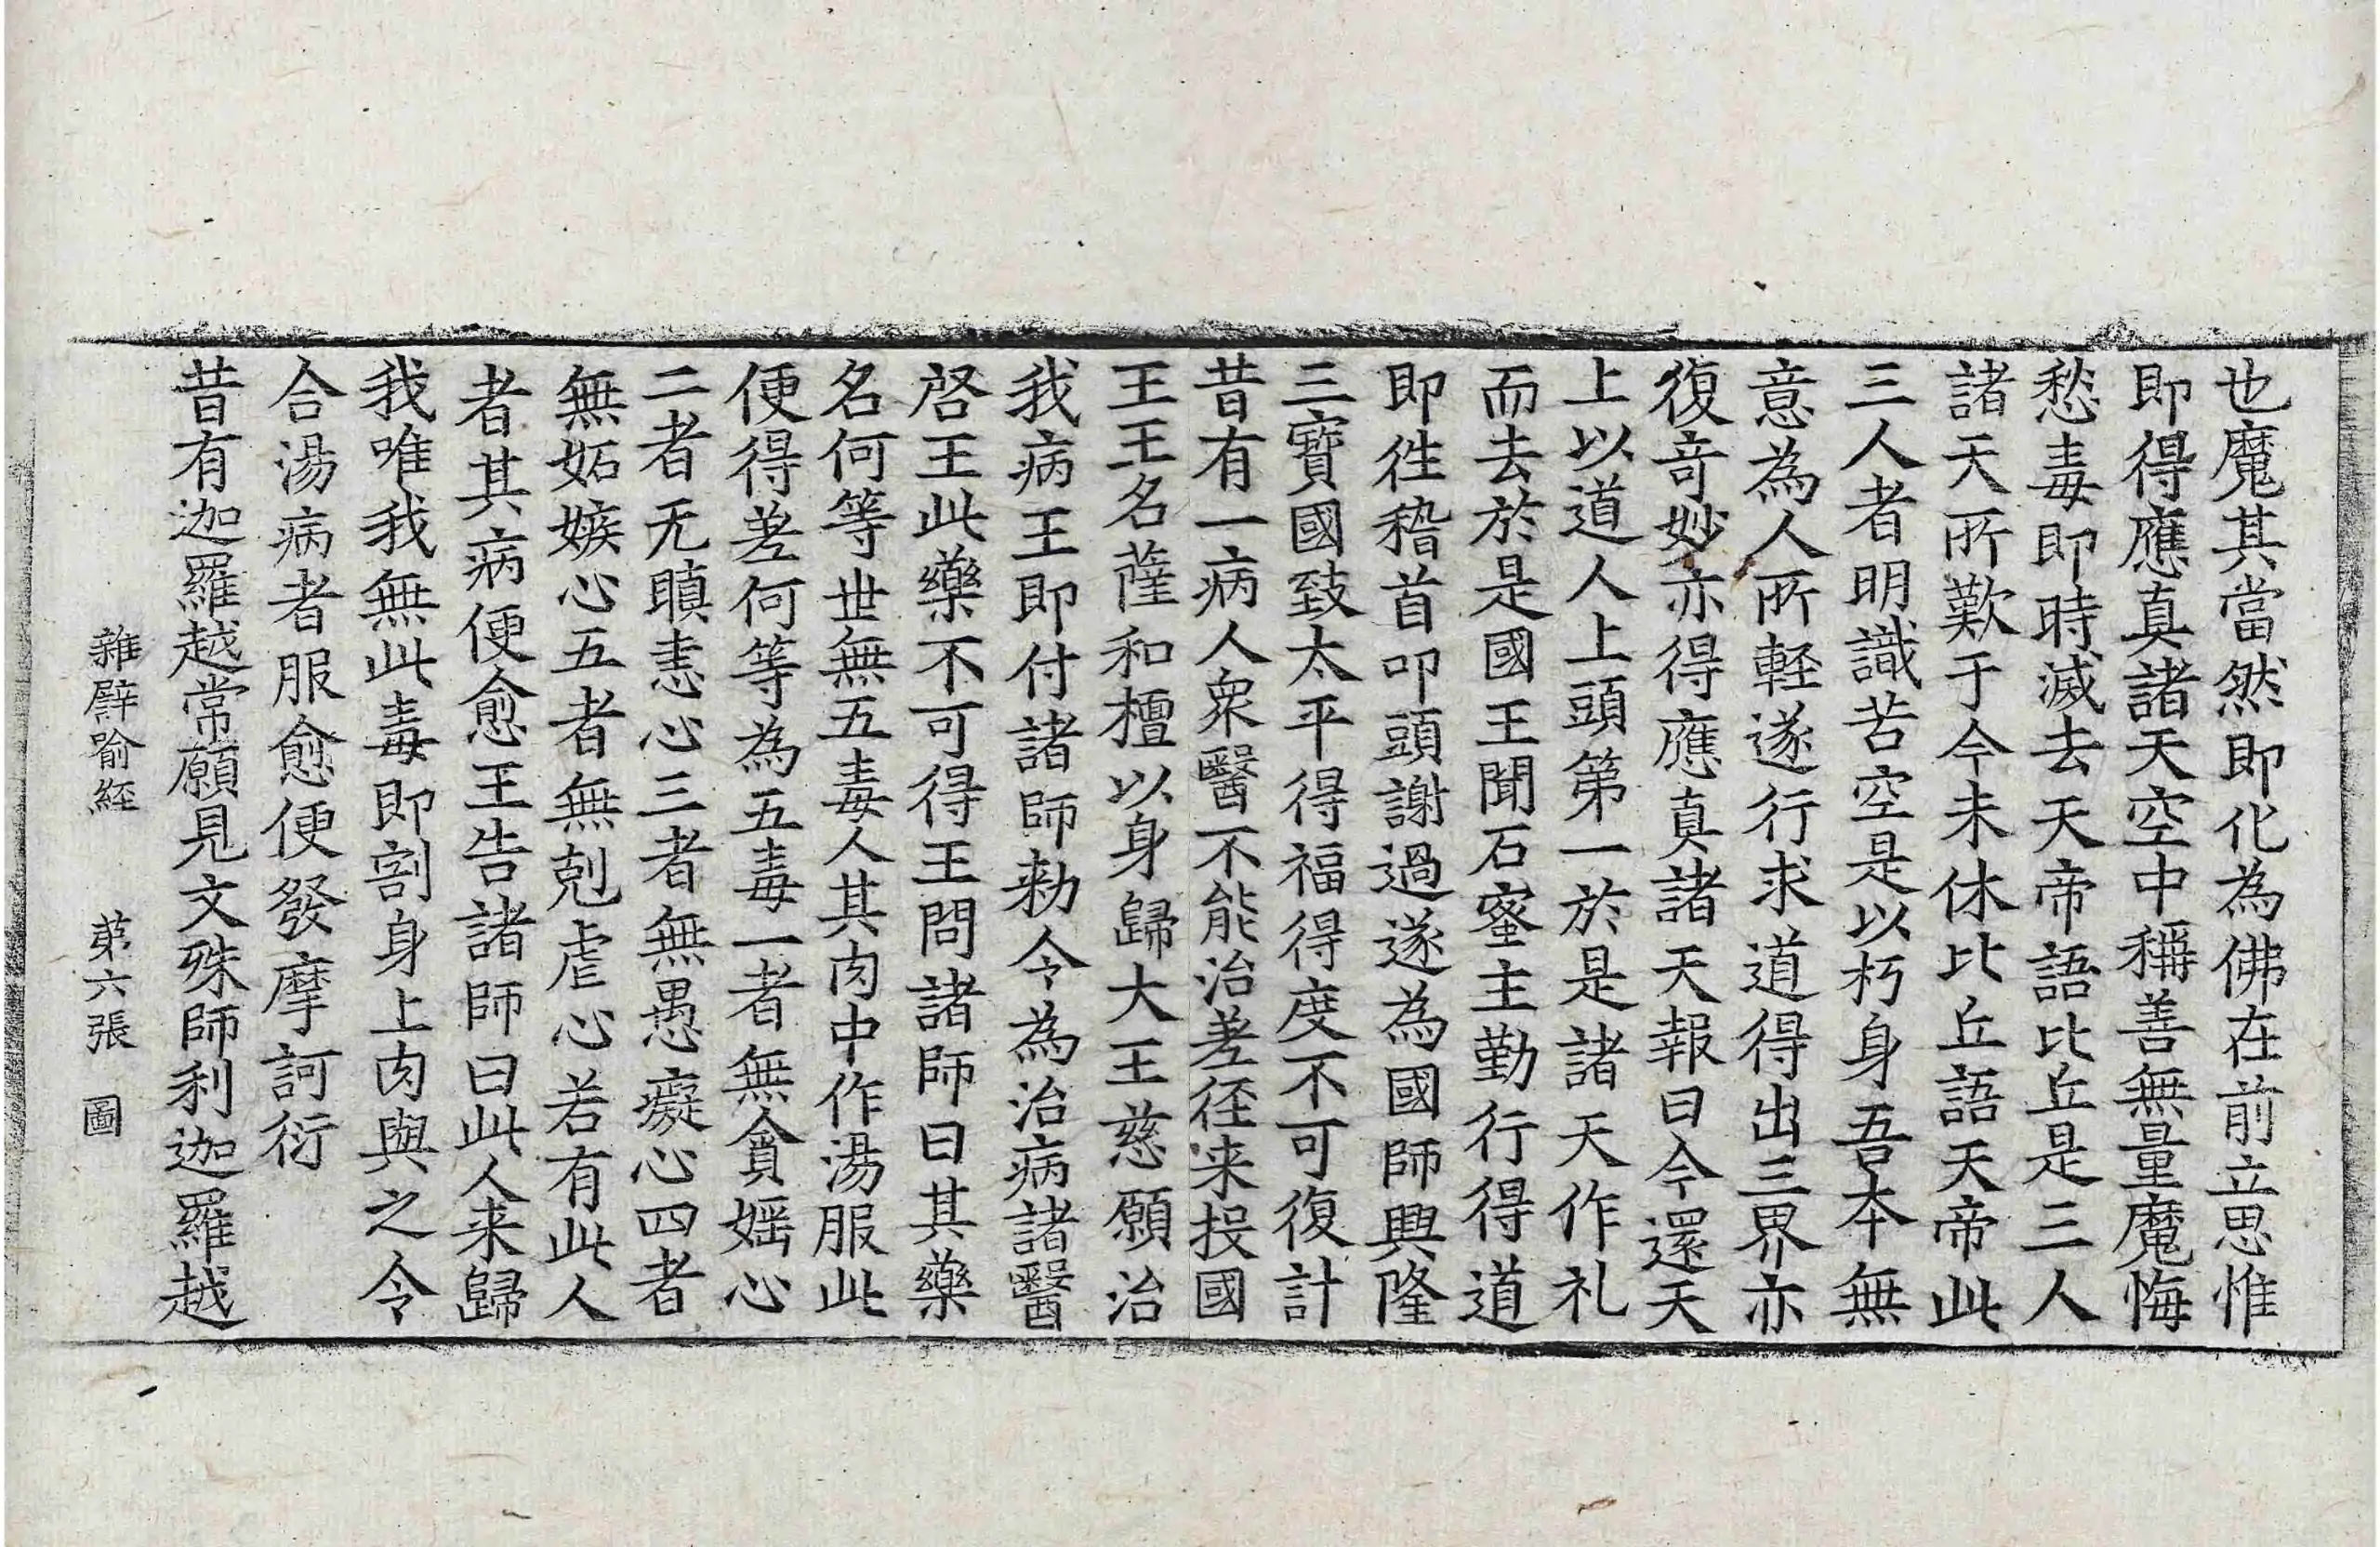 也魔其當然即化為佛在前立思惟
即得應真諸天空中稱善無量魔悔
愁毒即時滅去天帝語比丘是三人
諸天所歎于今未休比丘語天帝此
三人者明識苦空是以朽身吾本無
意為人所輕遂行求道得出三界亦
復奇妙亦得應真諸天報曰今還天
上以道人上頭第一於是諸天作礼
而去於是國王聞石蜜主勤行得道
即徃稽首叩頭謝過遂為國師興隆
三寶國致太平得福得度不可復計
昔有一病人衆醫不能治差径来投國
王王名薩和檀以身歸大王慈願治
我病王即付諸師勑令為治病諸醫
啓王此藥不可得王問諸師曰其藥
名何等世無五毒人其肉中作湯服此
便得差何等為五毒一者無貪婬心
二者无瞋恚心三者無愚癡心四者
無妬嫉心五者無剋虐心若有此人
者其病便愈王告諸師曰此人来歸
我唯我無此毒即割身上肉與之令
合湯病者服愈便發摩訶衍
昔有迦羅越常願見文殊師利迦羅越
雜譬喻經 第六張 圖